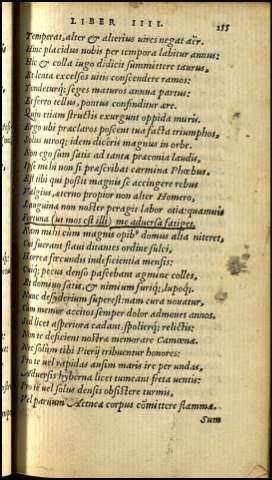 LIBER IIII. 155
Temperat, alter & alterius uires negat aër.
Hinc placidus nobis per tempora labitur annus:
Hic & colla iugo didicit summittere taurus,
Et lenta excelsos uitis conscendere ramos:
Tondeturq; seges maturos annua partus:
Et ferro tellus, pontus confinditur ære.
Quin etiam structis exurgunt oppida muris.
Ergo ubi præclaros poscent tua facta triumphos,
Solus utroq; idem diceris magnus in orbe.
Non ego sum satis ad tanta præconia laudis,
Ipse mihi non si præscribat carmina Phœbus.
Est tibi qui possit magnis se accingere rebus
Valgius, æterno propior non alter Homero,
Languina non noster peragit labor otia: quamuis
Fortuna (ut mos est illi) me aduersa fatiget.
Nam mihi cum magnis opib⁹ domus alta niteret,
Cui fuerant flaui ditantes ordine sulci,
Horrea fœcundis indeficientia mensis:
Cuiq; pecus denso pascebant agmine colles,
Et domino satis, & nimium furiq; lupoq;.
Nunc desyderium superest: nam cura nouatur,
Cum memor accitos semper dolor admonet annos.
Sed licet asperiora cadant, spolierq; relictis:
Non te deficient nostræ memorare Camœnæ.
Nec solum tibi Pierij tribuentur honores:
Pro te uel rapidas ausim maris ire per undas,
Aduersis hyberna licet tumeant freta uentis:
Pro te uel solus densis obsistere turmis,
Vel paruum Aetneæ corpus cōmittere flammæ.
Sum